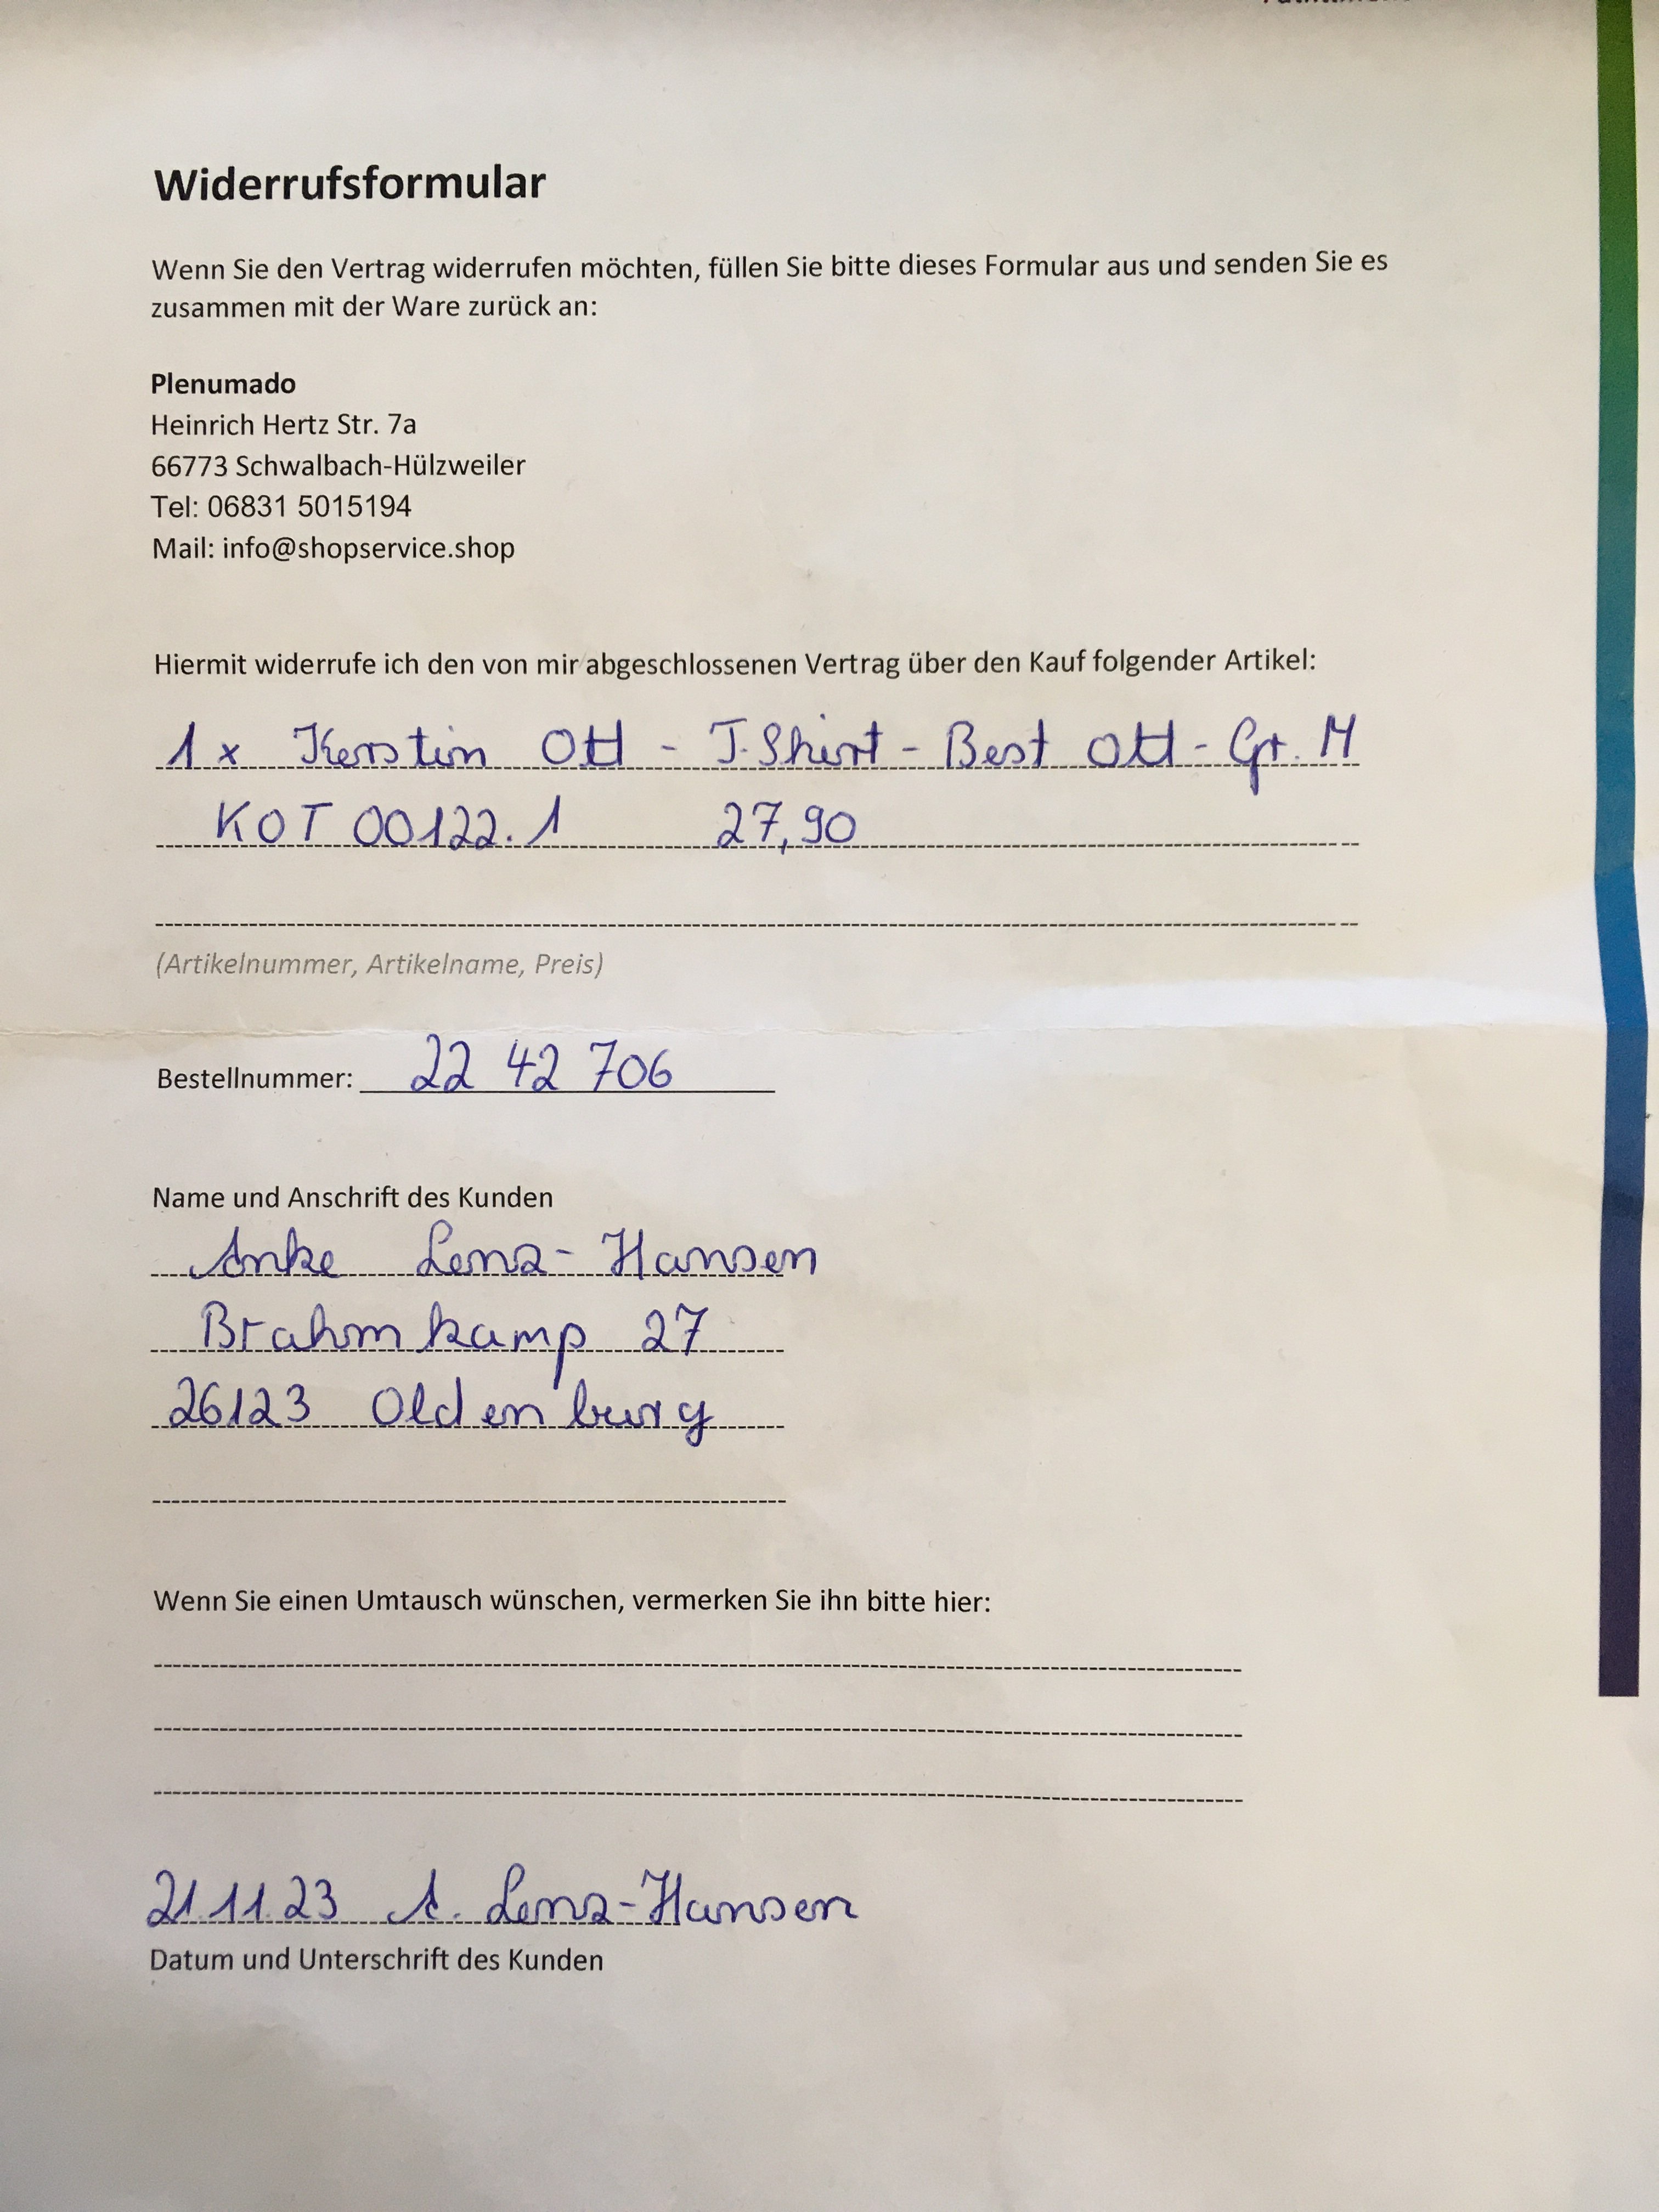 Widerrufsformular
Wenn Sie den Vertrag widerrufen möchten, füllen Sie bitte dieses Formular aus und senden Sie es
zusammen mit der Ware zurück an:
Plenumado
Heinrich Hertz Str. 7a
66773 Schwalbach-Hülzweiler
Tel: 06831 5015194
Mail: info@shopservice.shop
Hiermit widerrufe ich den von mir abgeschlossenen Vertrag über den Kauf folgender Artikel:
1x Kerstin Ott - T-Shirt - Best Ott - Gr. M
KOT 00122.1 27,90
(Artikelnummer, Artikelname, Preis)
Bestellnummer: 22 42 706
Name und Anschrift des Kunden
Anke Lenz-Hansen
Brahmkamp 27
26123 Oldenburg
Wenn Sie einen Umtausch wünschen, vermerken Sie ihn bitte hier:
21.11.23 A. Lenz-Hansen
Datum und Unterschrift des Kunden